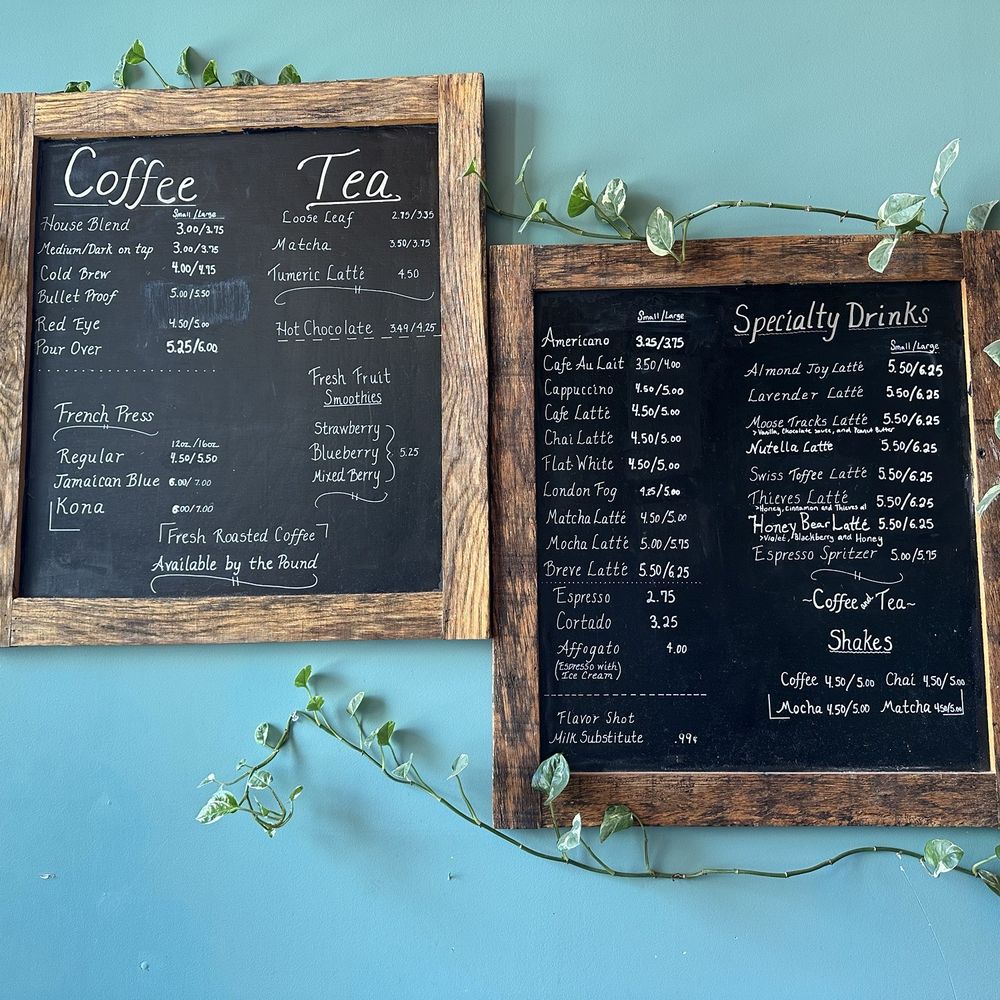 Coffee
Small/Large
House Blend 3.00/3.75
Medium/Dark on tap 3.00/3.75
Cold Brew 4.00/4.75
Bullet Proof 5.00/5.50
Red Eye 4.50/5.00
Pour Over 5.25/6.00
French Press
12oz./16oz.
Regular 4.50/5.50
Jamaican Blue 6.00/7.00
Kona 6.00/7.00
Tea
Loose Leaf 2.75/3.35
Matcha 3.50/3.75
Tumeric Latté 4.50
Hot Chocolate 3.49/4.25
Fresh Fruit
Smoothies
Strawberry
Blueberry 5.25
Mixed Berry
Fresh Roasted Coffee
Available by the Pound
Small/Large
Americano 3.25/3.75
Cafe Au Lait 3.50/4.00
Cappuccino 4.50/5.00
Cafe Latté 4.50/5.00
Chai Latté 4.50/5.00
Flat White 4.50/5.00
London Fog 4.25/5.00
Matcha Latté 4.50/5.00
Mocha Latté 5.00/5.75
Breve Latté 5.50/6.25
Espresso 2.75
Cortado 3.25
Affogato 4.00
(Espresso with)
Ice Cream)
Flavor Shot
Milk Substitute .99¢
Specialty Drinks
Small/Large
Almond Joy Latté 5.50/6.25
Lavender Latté 5.50/6.25
Moose Tracks Latté 5.50/6.25
>Vanilla, Chocolate sauce, and Peanut Butter
Nutella Latté 5.50/6.25
Swiss Toffee Latté 5.50/6.25
Thieves Latté 5.50/6.25
>Honey, Cinnamon and Thieves oil
Honey Bear Latté 5.50/6.25
>Violet, Blackberry and Honey
Espresso Spritzer 5.00/5.75
~Coffee and Tea~
Shakes
Coffee 4.50/5.00 Chai 4.50/5.00
Mocha 4.50/5.00 Matcha 4.50/5.00